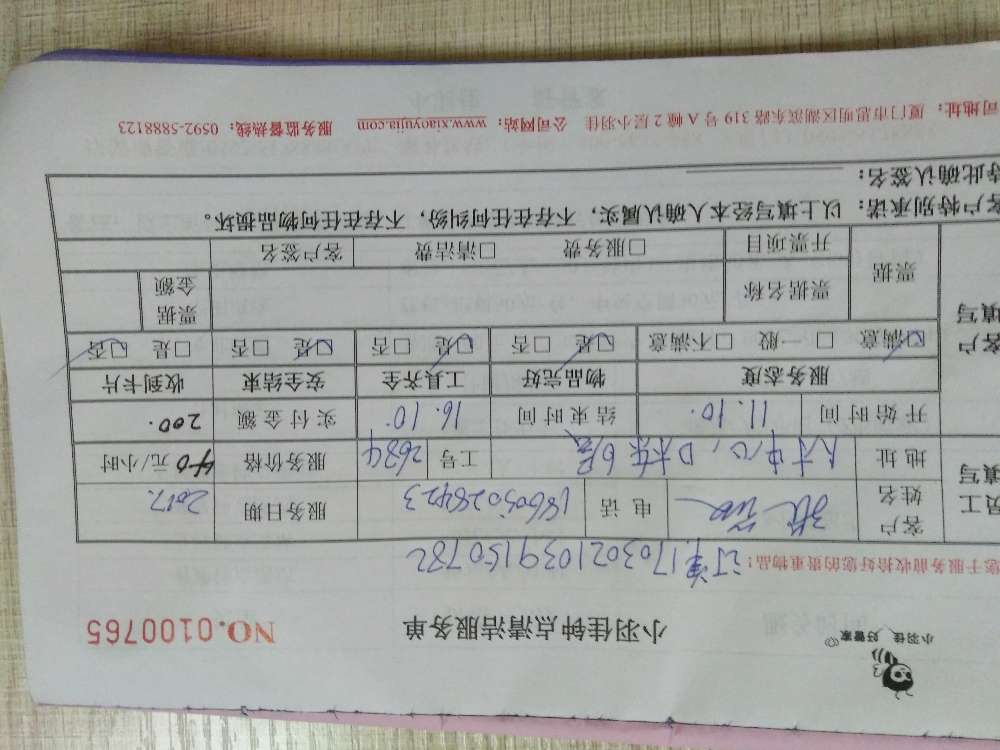 小羽佳 好管家
小羽佳钟点清洁服务单
NO.0100765
您于服务前收拾好您的贵重物品!
订单170302103915078
员工 填写
客户姓名 电话 服务日期 2017.
地址 人才中心 6层 工号 2684 服务价格 40元/小时
开始时间 11.10 结束时间 16.10 实付金额 200.
客户 填写
服务态度 物品完好 工具齐全 安全结束 收到卡片
☑满意 □一般 □不满意 ☑是 □否 ☑是 □否 ☑是 □否 □是 ☑否
票据 票据名称 票据金额
开票项目 □服务费 □清洁费 客户签名
客户特别承诺: 以上填写经本人确认属实,不存在任何纠纷,不存在任何物品损坏。
特此确认签名:
司地址: 厦门市思明区湖滨东路 319 号 A 幢 2 层小羽佳 公司网站: www.xiaoyujia.com 服务监督热线: 0592-5888123